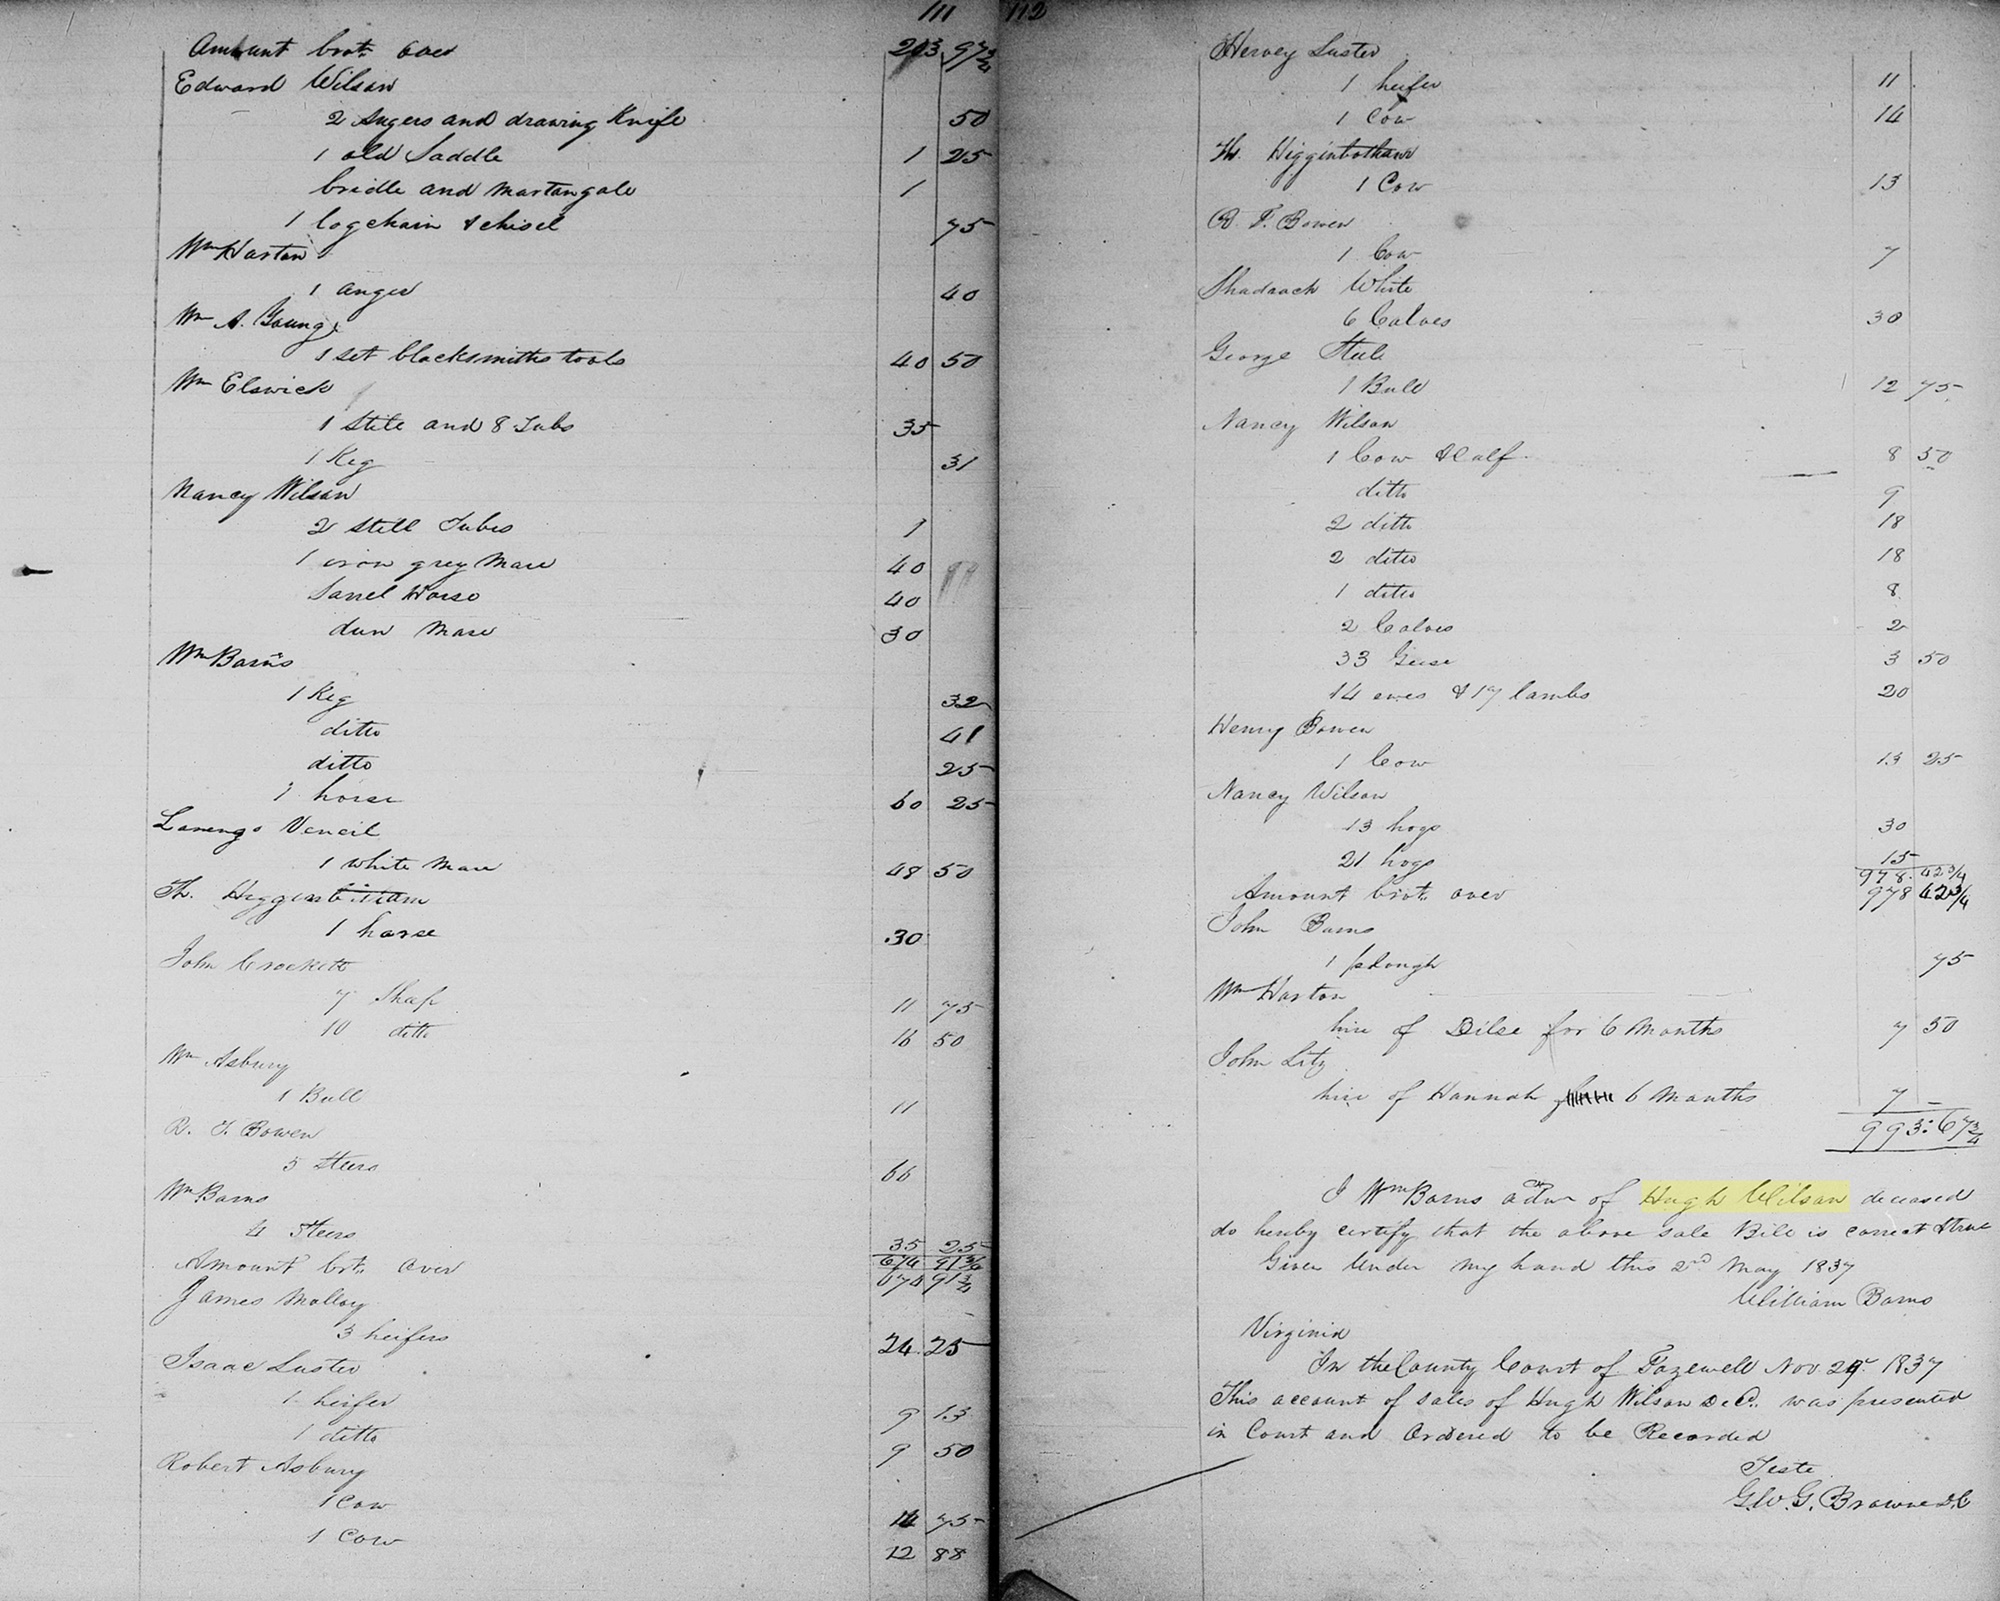 111
Amount brot. over 203 97 3/4
Edward Wilson
2 Augers and drawing Knife 50
1 old Saddle 1 25
bridle and martangale 1
1 logchain & chisel 75
Wm Harton
1 auger 40
Wm A. Young
1 set blacksmiths tools 40 50
Wm Elswick
1 Stile and 8 Tubs 35
1 Keg 31
Nancy Wilson
2 still Tubes 1
1 iron grey Mare 40
Sarrel Horse 40
dun Mare 30
Wm Barns
1 Keg 32
ditto 41
ditto 25
1 horse 60 25
Lorengo Vencil
1 white Mare 48 50
Th. Higginbotham
1 horse 30
John Crockett
7 Shap 11 75
10 ditto 16 50
Wm Asbury
1 Bull 11
R. T. Bowen
5 Steers 66
Wm Barns
4 Steers 35 25
674 91 3/4
Amount brt. over 674 91 3/4
James Molloy
3 heifers 24 25
Isaac Luster
1 heifer 9 13
1 ditto 9 50
Robert Asbury
1 Cow 14 75
1 Cow 12 88
112
Hervey Luster
1 heifer 11
1 Cow 14
Th. Higginbotham
1 Cow 13
R. T. Bowen
1 Cow 7
Shadrach White
6 Calves 30
George Steele
1 Bull 12 75
Nancy Wilson
1 Cow & Calf 8 50
ditto 9
2 ditto 18
2 ditto 18
1 ditto 8
2 Calves 2
33 Geese 3 50
14 ewes & 17 lambs 20
Henry Bowen
1 Cow 13 25
Nancy Wilson
13 hogs 30
21 hogs 15
978 42 3/4
Amount brot. over 978 42 3/4
John Barns
1 plough 75
Wm Harton
hire of Dilse for 6 Months 7 50
John Litz
hire of Hannah 6 Months 7 –
993.67 3/4
I Wm Barns adm of Hugh Wilson deceased
do hereby certify that the above sale Bill is correct & true
Given Under my hand this 2nd May 1837
William Barns
Virginia
In the County Court of Tazewell Nov 29 1837
This account of sales of Hugh Wilson Decd. was presented
in Court and Ordered to be Recorded
Teste
G.W.G. Browne D.C